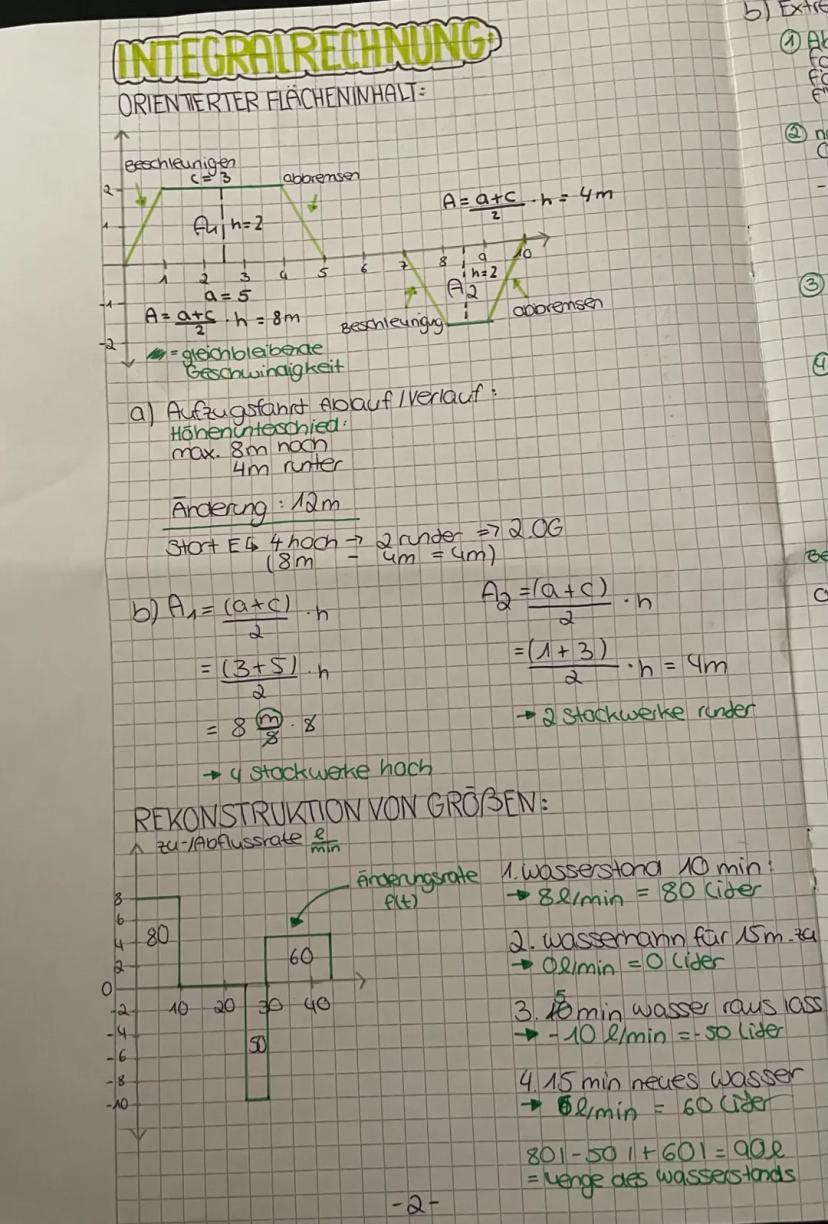 INTEGRALRECHNUNG:
ORIENTIERTER FLÄCHENINHALT:
Beschleunigen
c = 3
abbremsen
2
1
A1 h=2
A = a+c/2 · h = 4m
1 2 3 4 5 6 7 8 9 10
a = 5
h=2
A2
-1
A = a+c/2 · h = 8m
Beschleunigug
abbremsen
-2
= gleichbleibende
Geschwindigkeit
a) Aufzugsfahrt Ablauf/Verlauf:
Höhenunteschied:
max. 8m hoch
4m runter
Änderung: 12m
Start EG 4 hoch → 2 runder => 2.OG
(8m - 4m = 4m)
b) A1 = (a+c)/2 · h
= (3+5)/2 · h
= 8 m/s · s
→ 4 Stockwerke hoch
A2 = (a+c)/2 · h
= (1+3)/2 · h = 4m
→ 2 Stockwerke runder
REKONSTRUKTION VON GRÖßEN:
zu-/Abflussrate l/min
Änderungsrate
f(t)
8
6
4
2
0
-2
-4
-6
-8
-10
80
60
50
10 20 30 40
1. Wasserstand 10 min:
→ 8l/min = 80 Lider
2. Wasserhann für 15m. zu
→ 0l/min = 0 Lider
3. 5 min wasser raus lass
→ -10 l/min = -50 Lider
4. 15 min neues wasser
→ l/min = 60 Lider
80l - 50l + 60l = 90l
= Menge des Wasserstands
-2-
b) Extre
① Ab
② n
③
④
Be